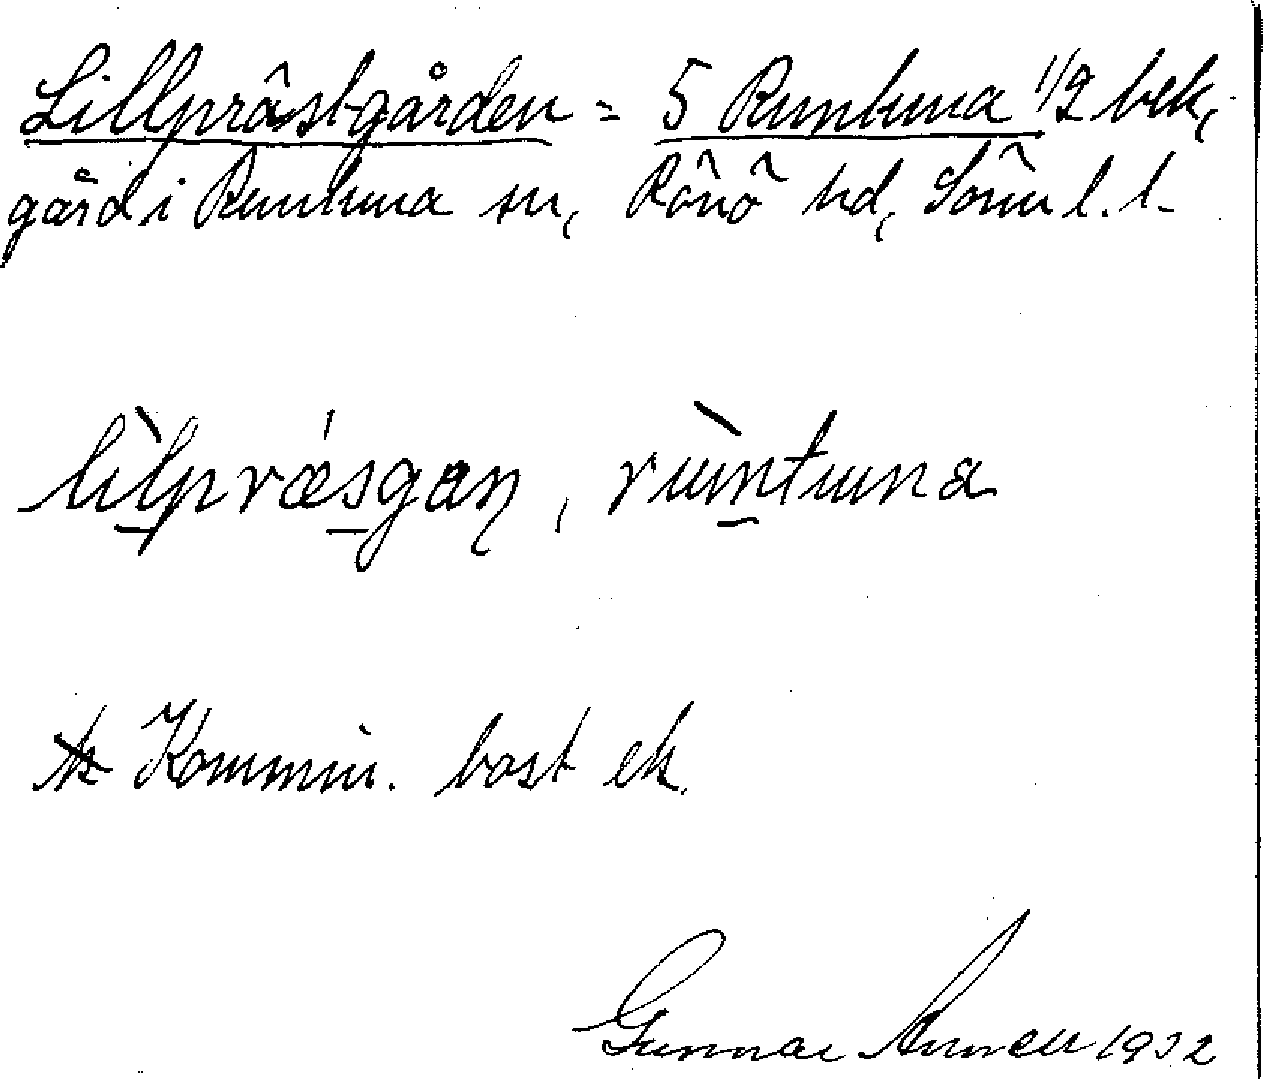 Lillprästgården = 5 Runtuna 1/2 bek,
gård i Runtuna sn, Rönö hd, Sörm l. l.
lìlpræ̍sgaɳ, rùntuna
Kommin. bost ek.
Gunnar 1932